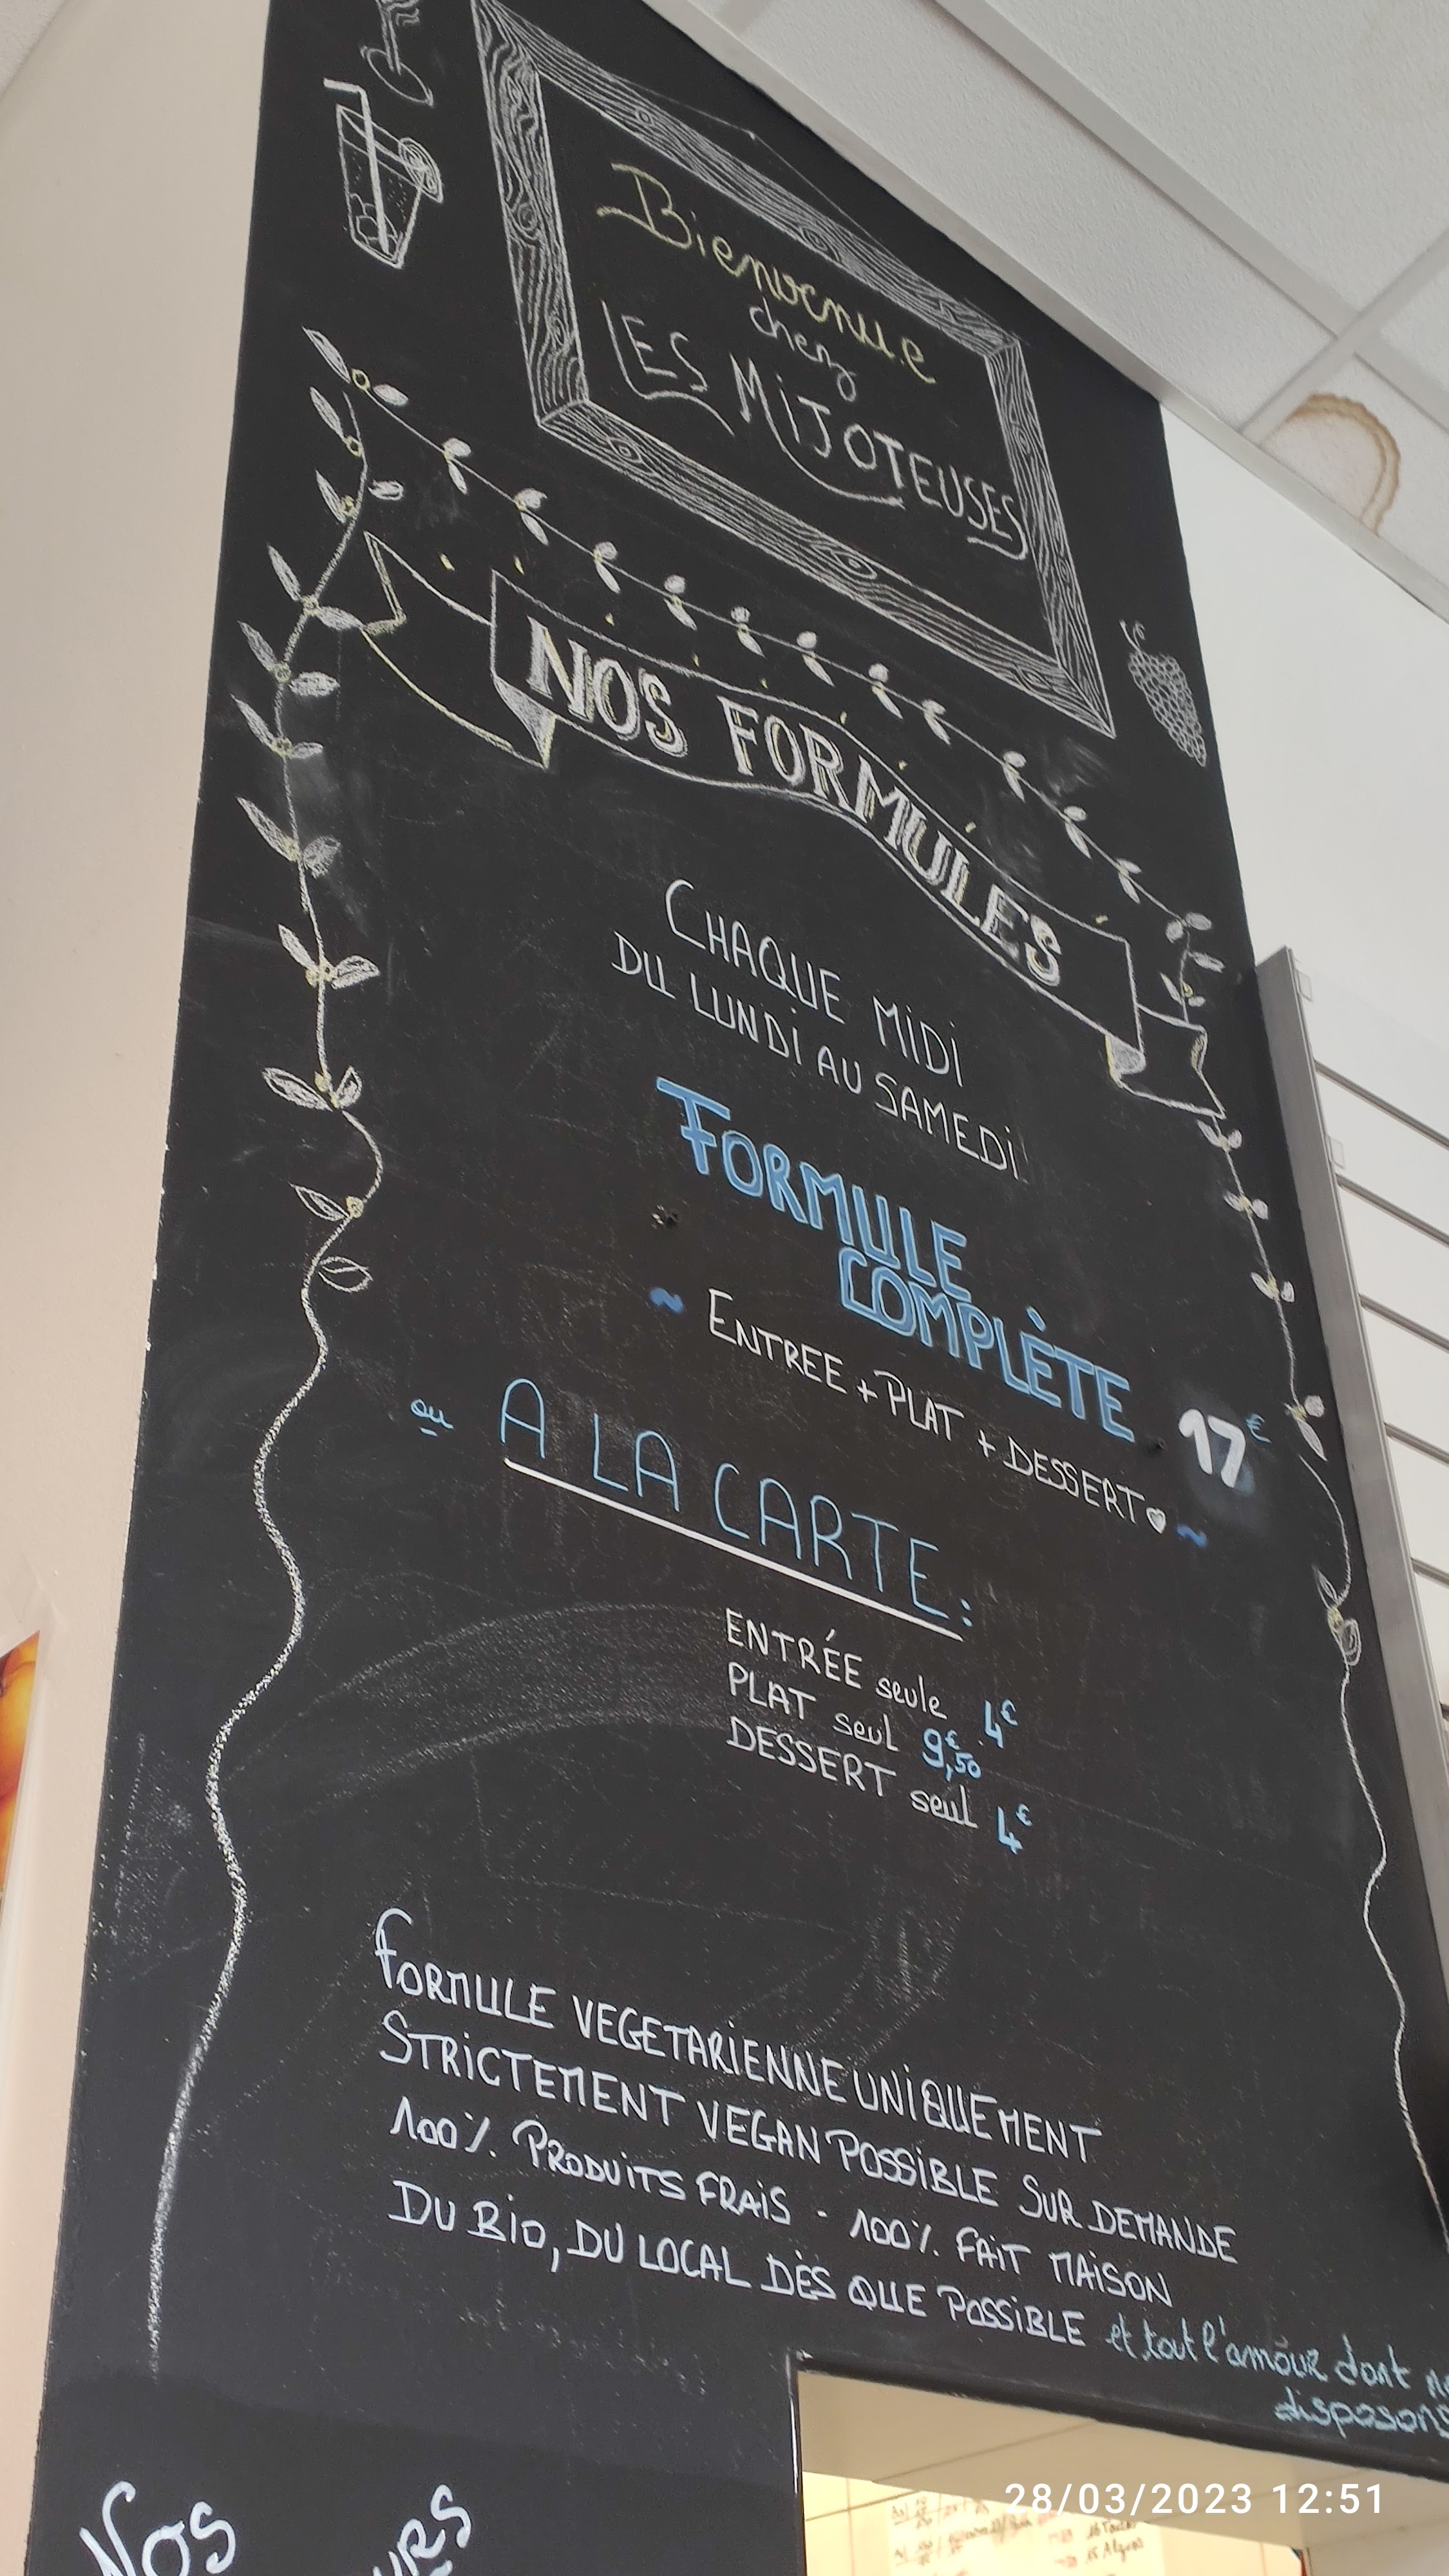 Bienvenue
chez
LES MiJOTEUSES
NOS FORMULES
CHAQUE MiDi
DU LUNDi AU SAMEDi
FORMULE
COMPLÈTE 17€
~ ENTREE + PLAT + DESSERT ♡ ~
ou A LA CARTE :
ENTRÉE seule 4€
PLAT seul 9€,50
DESSERT seul 4€
FORMULE VEGETARiENNE UNiQUEMENT
STRiCTEMENT VEGAN POSSiBLE SUR DEMANDE
100% PRODUiTS FRAiS - 100% FAiT MAiSON
DU BiO, DU LOCAL DÈS QUE POSSiBLE et tout l'amour dont
disposons
Nos
28/03/2023 12:51